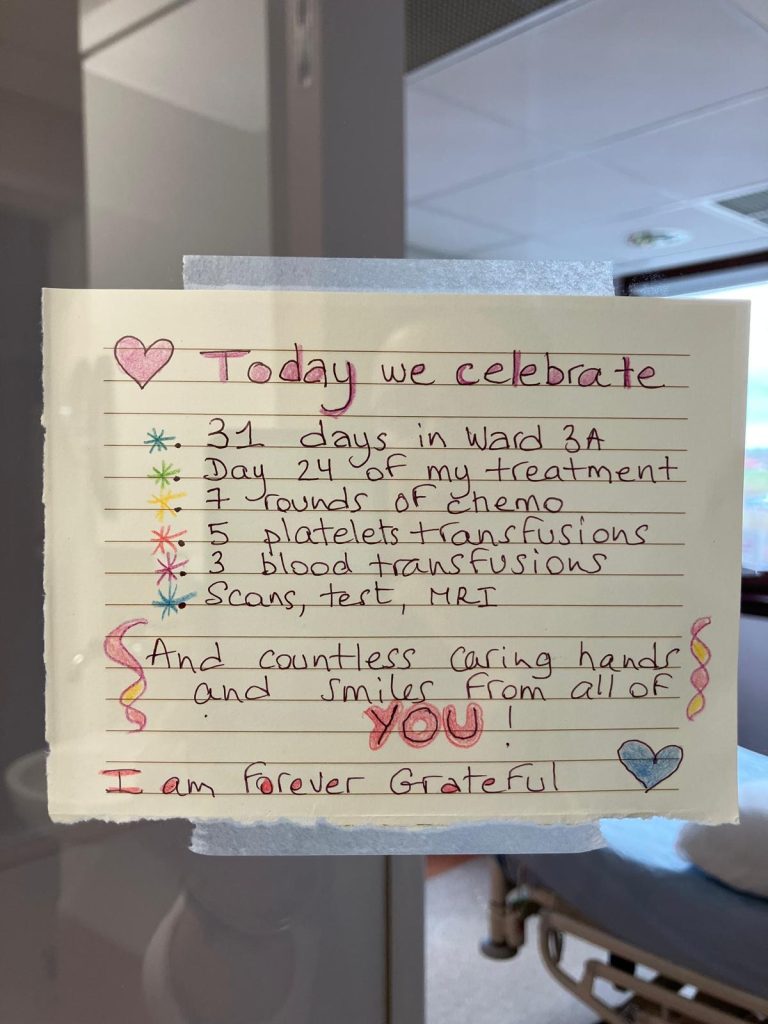 Today we celebrate
. 31 days in Ward 3A
. Day 24 of my treatment
. 7 rounds of chemo
. 5 platelets transfusions
. 3 blood transfusions
. Scans, test, MRI
And countless caring hands
and smiles from all of
YOU!
I am forever Grateful